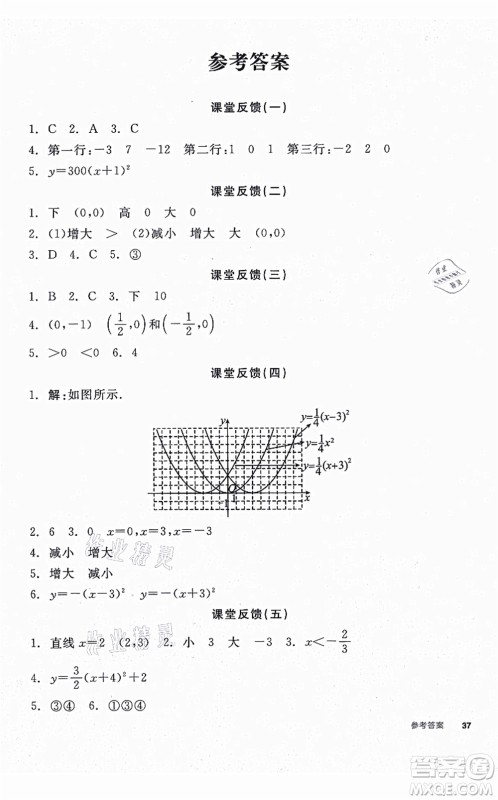 参考答案
课堂反馈(一)
1. C 2. A 3. C
4. 第一行:－3 7 －12 第二行:1 0 1 第三行:－2 2 0
5. y＝300(x＋1)²
课堂反馈(二)
1. 下 (0,0) 高 0 大 0
2. (1)增大 ＞ (2)减小 增大 大 0
3. D 4. C 5. ③
课堂反馈(三)
1. B 2. C 3. 下 10
4. (0,－1) (1/2,0)和(－1/2,0)
5. ＞0 ＜0 6. 4
课堂反馈(四)
1. 解:如图所示.
y y＝1/4(x－3)²
y＝1/4x²
y＝1/4(x＋3)²
1
O 1 x
－1
2. 6 3. 0 x＝0,x＝3,x＝－3
4. 减小 增大
5. 增大 减小
6. y＝－(x－3)² y＝－(x＋3)²
课堂反馈(五)
1. 直线x＝2 (2,3) 2. 小 3 大 －3 3. x＜－2/3
4. y＝3/2(x＋2)²
5. ③④ 6. ①③④
参考答案 37
作业精灵
作业精灵